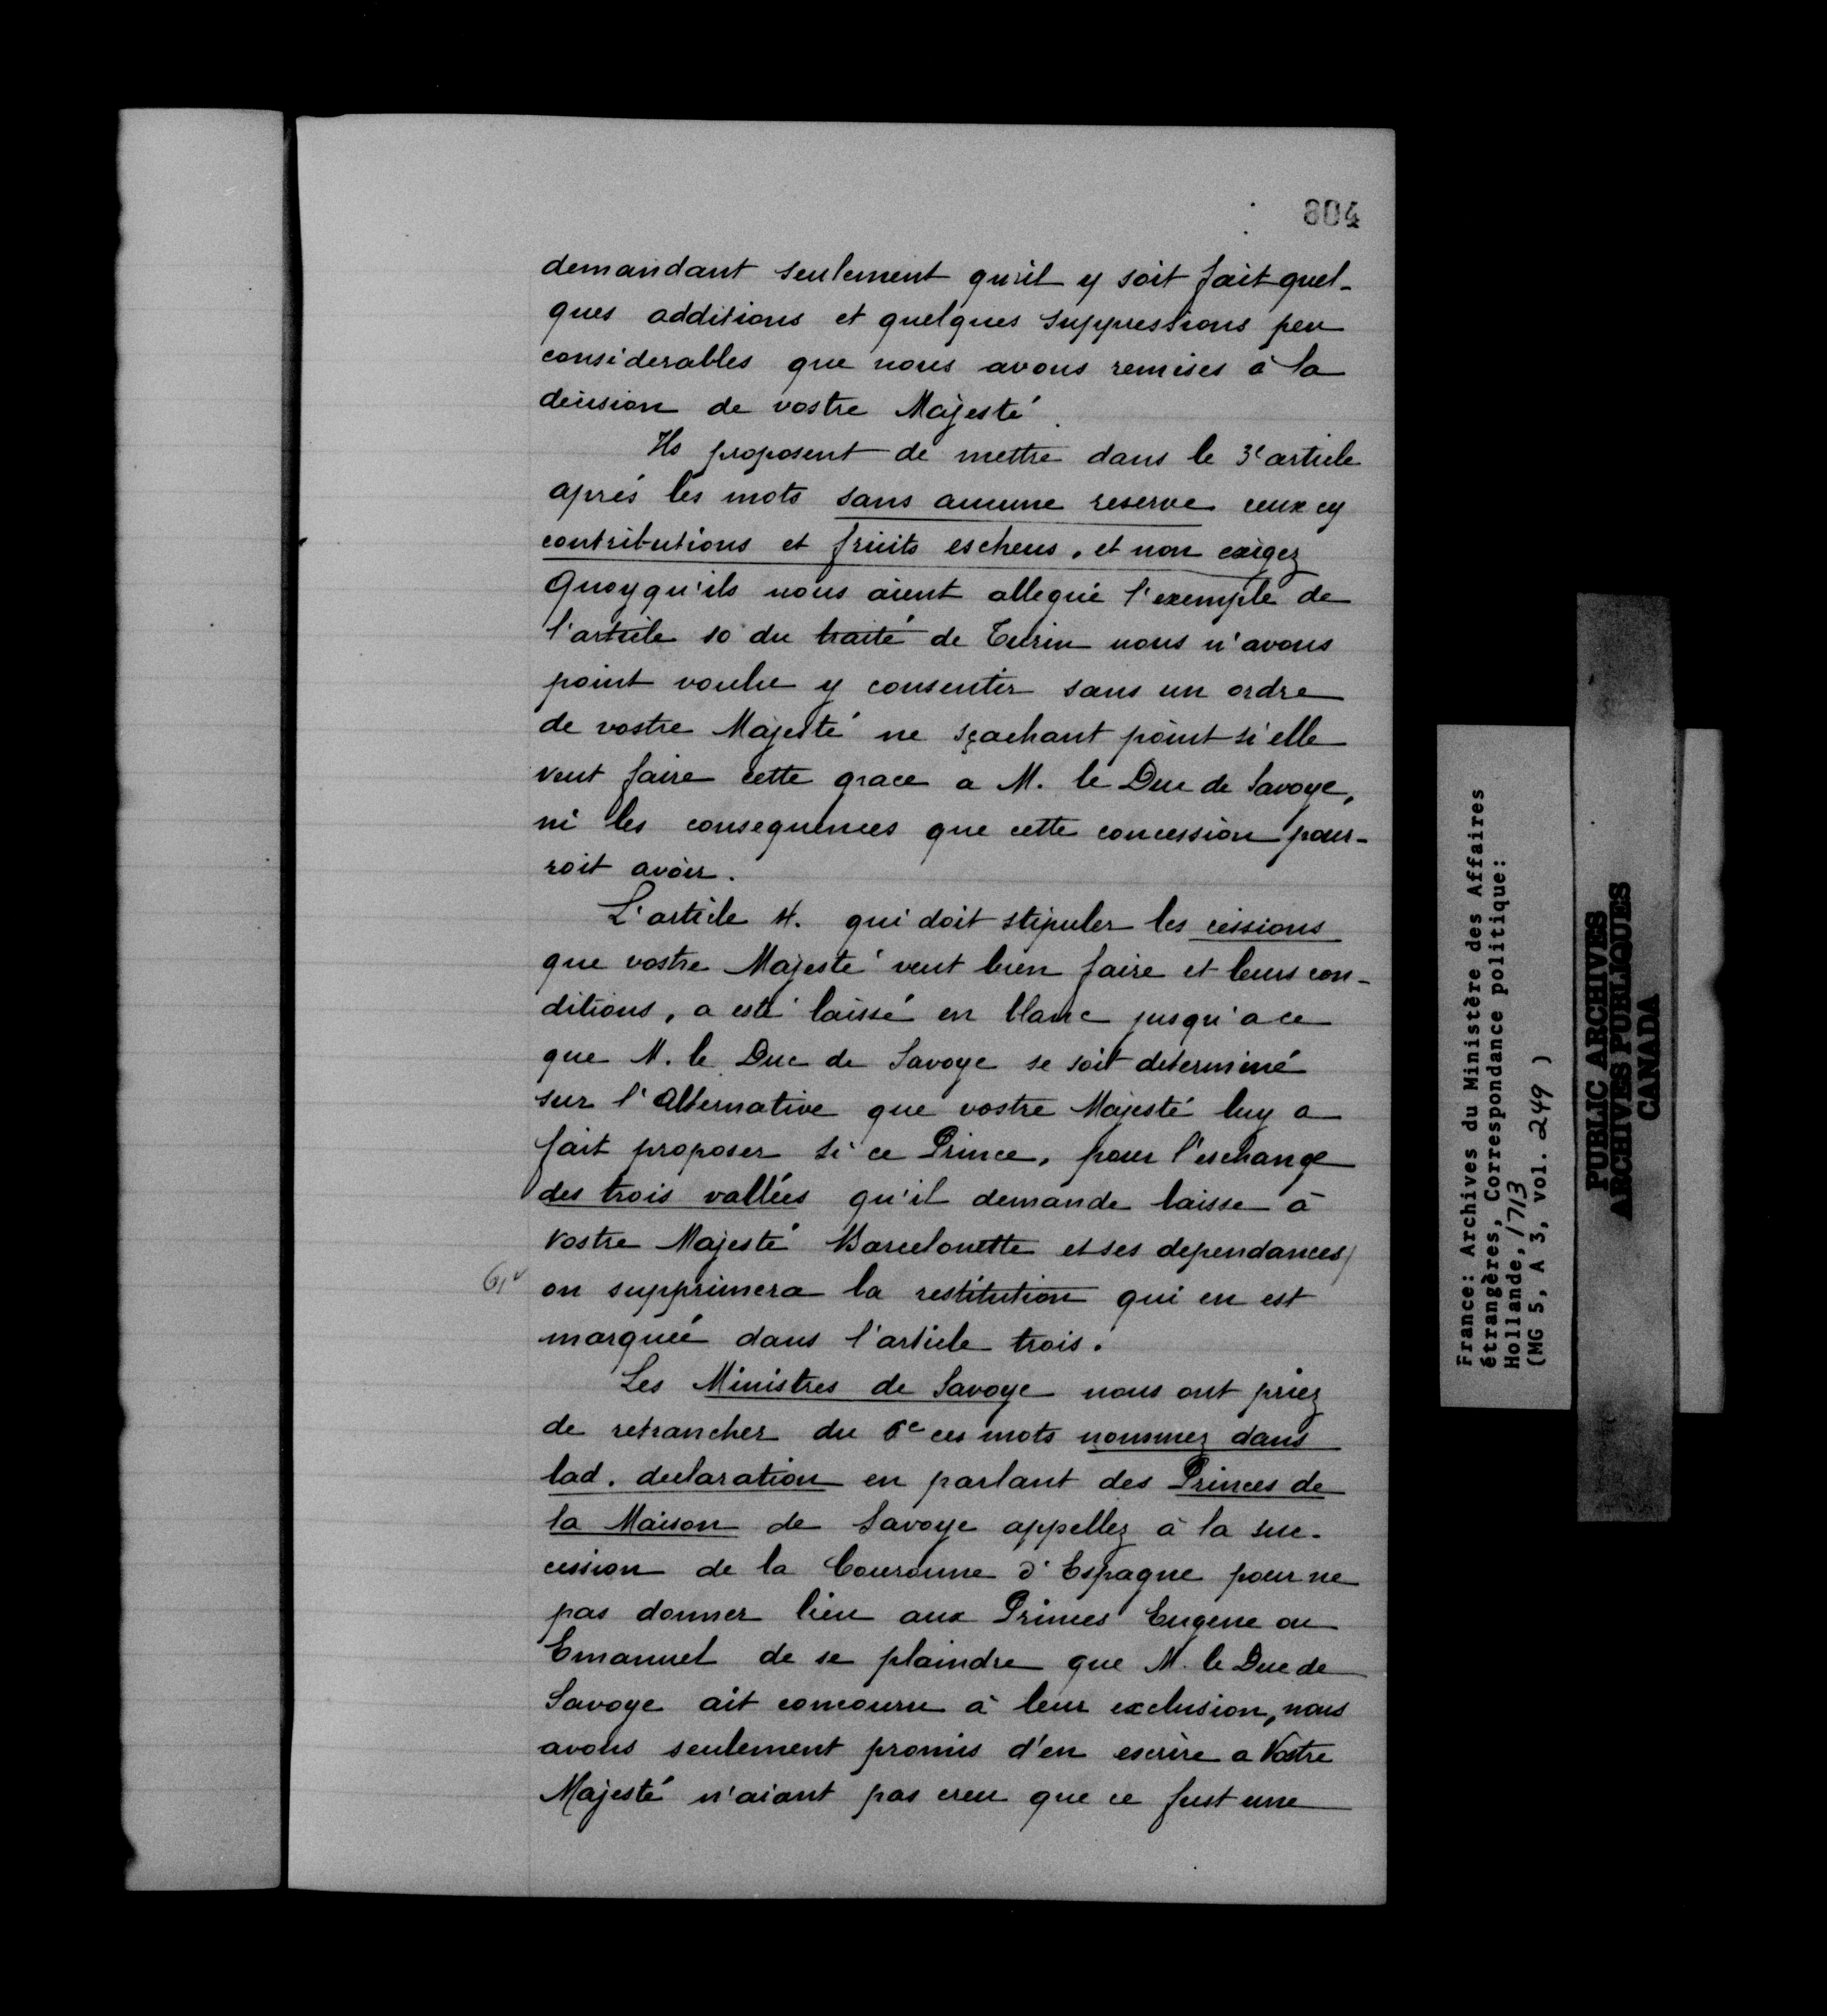 804
demandant seulement qu'il y soit fait quel-
ques additions et quelques suppressions peu
considerables que nous avons remises à la
décision de vostre Majesté.
Ils proposent de mettre dans le 3e article
aprés les mots sans aucune reserve ceux cy
contributions et fruits escheus, et non exigez
Quoyqu'ils nous aient allegué l'exemple de
l'article 10 du traité de Turin nous n'avons
point voulu y consentir sans un ordre
de vostre Majesté ne sçachant point si elle
veut faire cette grace a M. le Duc de Savoye,
ni les consequences que cette concession pour-
roit avoir.
L'article 4. qui doit stipuler les cessions
que vostre Majesté veut bien faire et leurs con-
ditions, a esté laissé en blanc jusqu'a ce
que M. le Duc de Savoye se soit determiné
sur l'Alternative que vostre Majesté luy a
fait proposer si ce Prince, pour l'eschange
des trois vallées qu'il demande laisse à
Vostre Majesté Barcelonette et ses dependances/
61v on supprimera la restitution qui en est
marquée dans l'article trois.
Les Ministres de Savoye nous ont priez
de retrancher du 6e ces mots nommez dans
lad. declaration en parlant des Princes de
la Maison de Savoye appellez à la suc-
cession de la Couronne d'Espagne pour ne
pas donner lieu aux Princes Eugene ou
Emanuel de se plaindre que M. le Duc de
Savoye ait concouru à leur exclusion, nous
avons seulement promis d'en escrire a Vostre
Majesté n'aiant pas creu que ce fust une
France: Archives du Ministère des Affaires
étrangères, Correspondance politique:
Hollande, 1713
(MG 5, A 3, vol. 249 )
PUBLIC ARCHIVES
ARCHIVES PUBLIQUES
CANADA